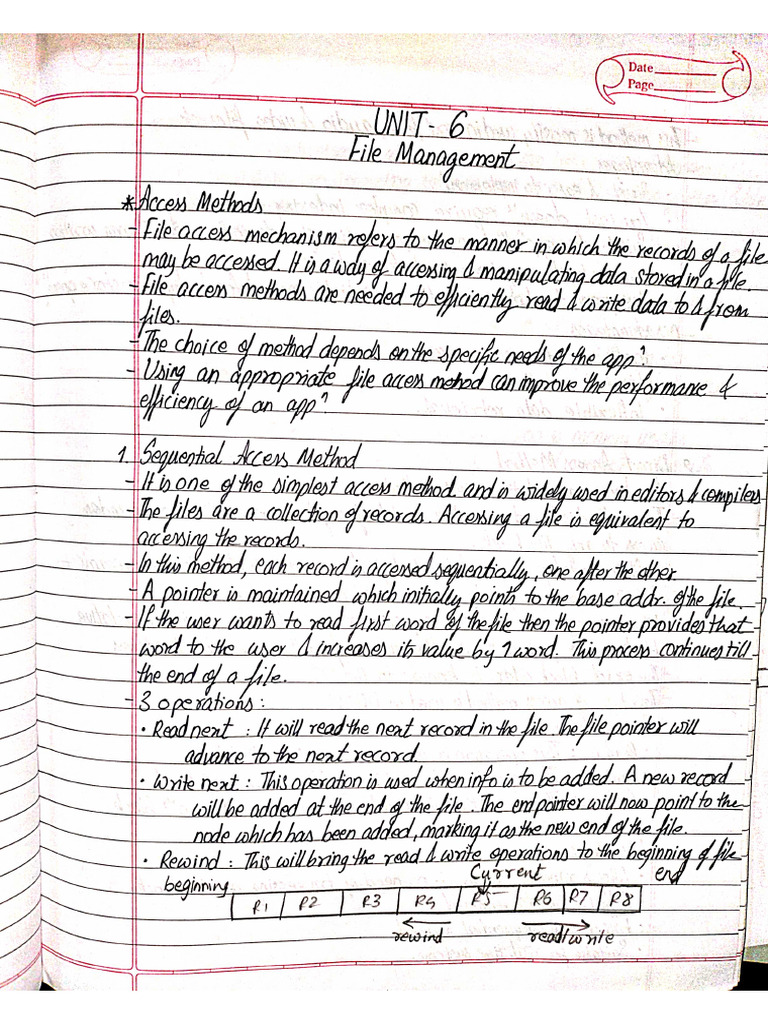 Date
Page
UNIT - 6
File Management
* Access Methods
- File access mechanism refers to the manner in which the records of a file
may be accessed. It is a way of accessing & manipulating data stored in a file
- File access methods are needed to efficiently read & write data to & from
files.
- The choice of method depends on the specific needs of the appⁿ.
- Using an appropriate file access method can improve the performance &
efficiency of an appⁿ.
1. Sequential Access Method
- It is one of the simplest access method and is widely used in editors & compilers
- The files are a collection of records. Accessing a file is equivalent to
accessing the records.
- In this method, each record is accessed sequentially, one after the other.
- A pointer is maintained which initially points to the base addr. of the file.
- If the user wants to read first word of the file then the pointer provides that
word to the user & increases its value by 1 word. This process continues till
the end of a file.
- 3 operations:
• Read next : It will read the next record in the file. The file pointer will
advance to the next record.
• Write next : This operation is used when info is to be added. A new record
will be added at the end of the file. The end pointer will now point to the
node which has been added, marking it as the new end of the file.
• Rewind : This will bring the read & write operations to the beginning of file
beginning Current end
R1 R2 R3 R4 R5 R6 R7 R8
rewind read/write